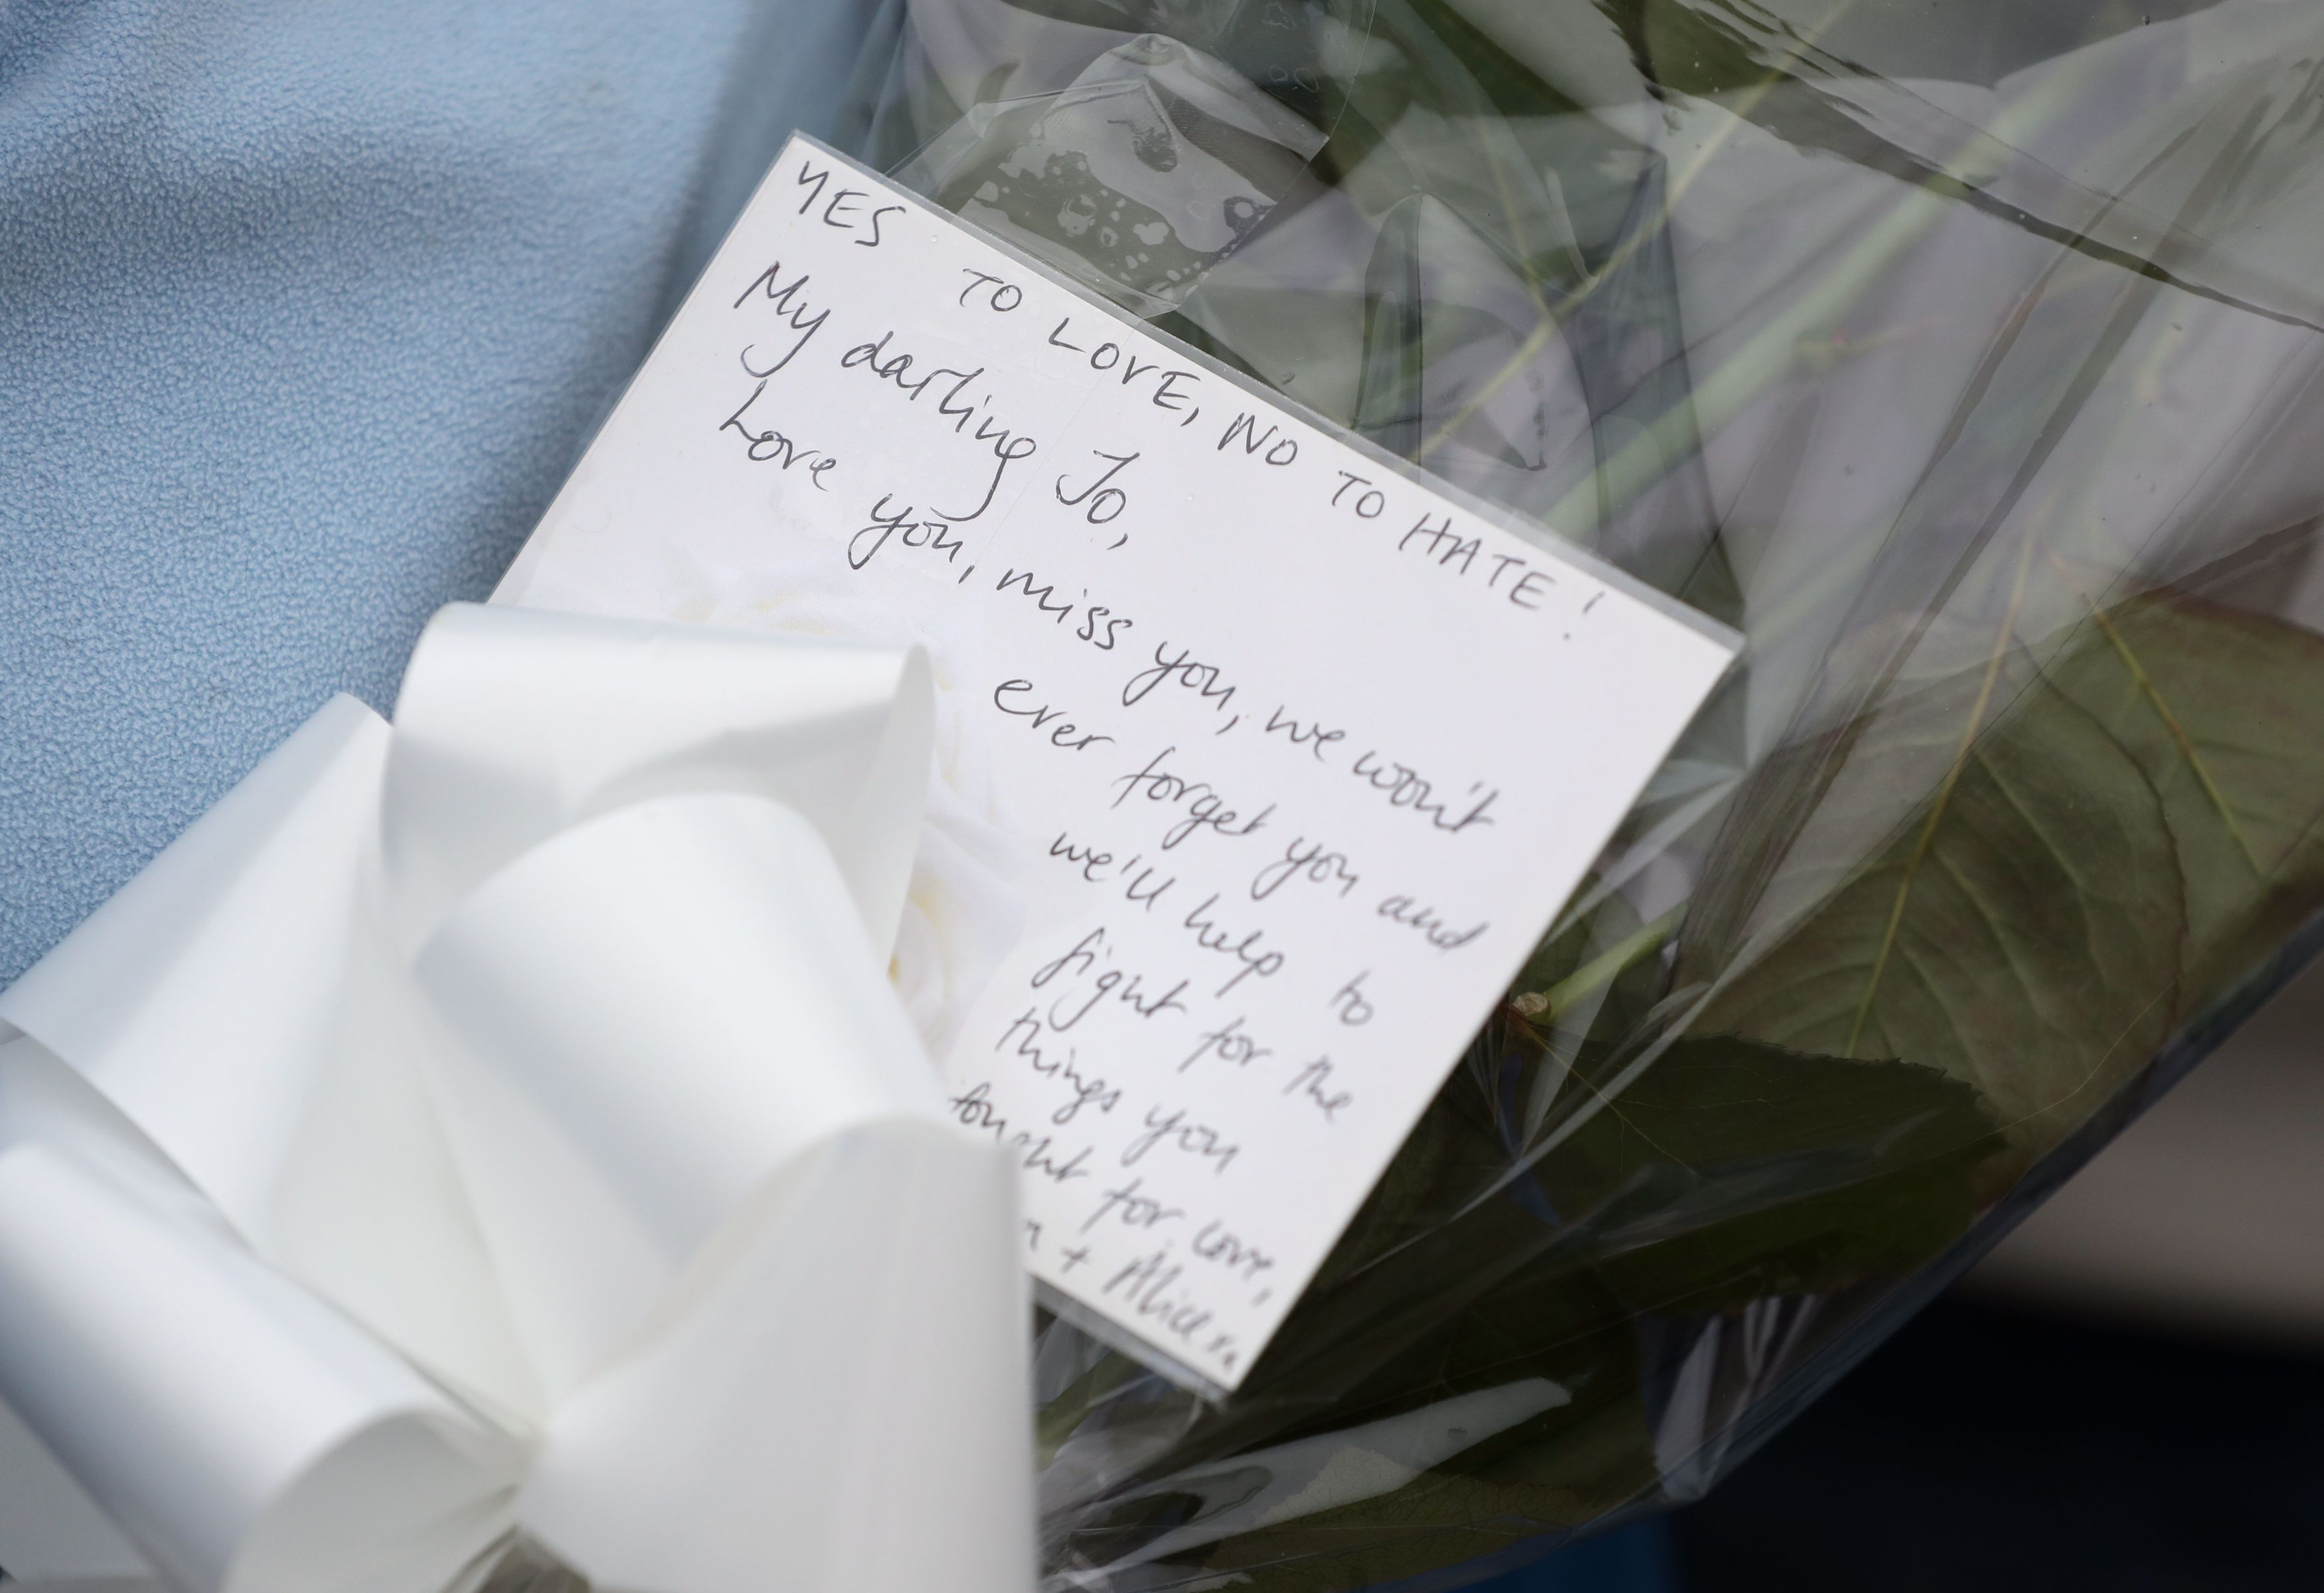 YES TO LOVE, NO TO HATE!
My darling Jo,
Love you, miss you, we won't
ever forget you and
we'll help to
fight for the
things you
fought for love,
+ Alice